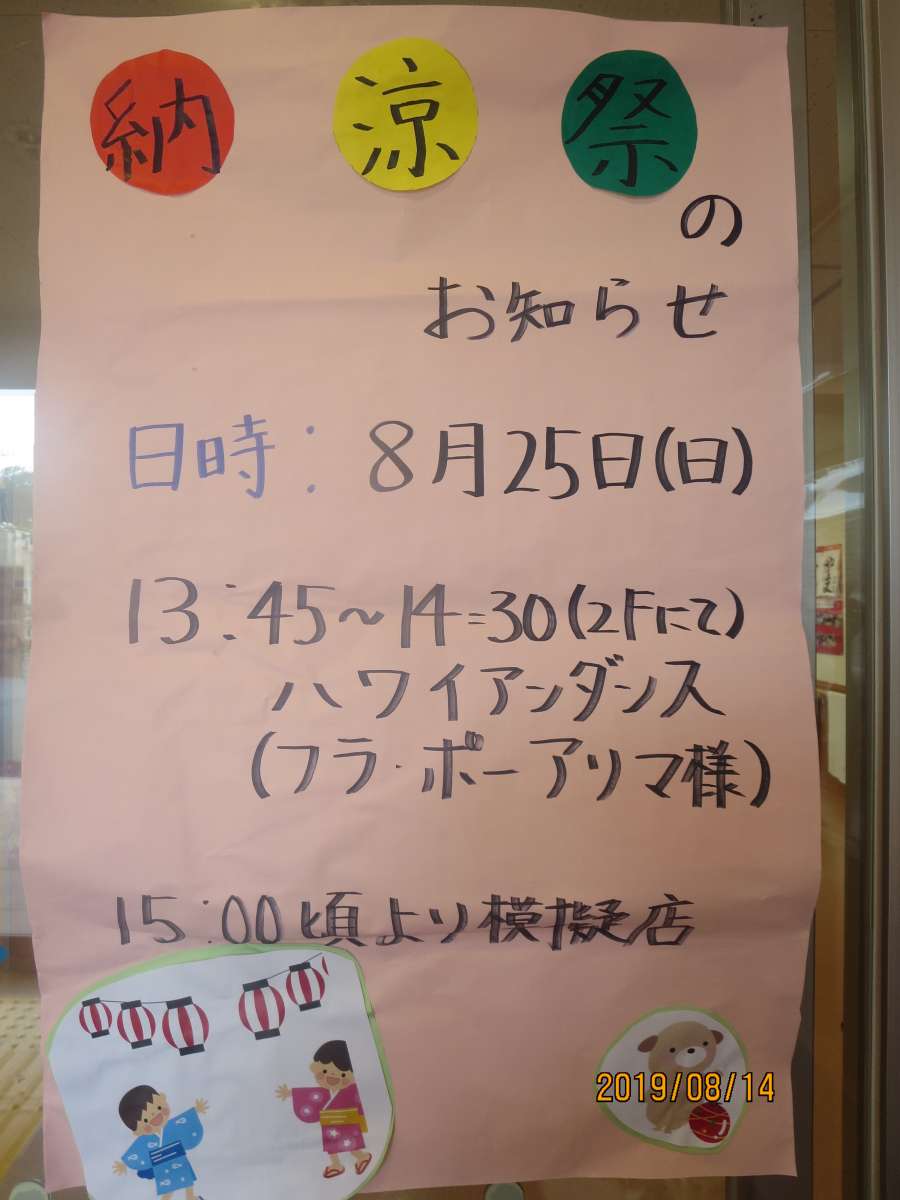 納涼祭
の
お知らせ
日時: 8月25日(日)
13:45~14:30(2Fにて)
ハワイアンダンス
(フラ・ポーアリマ様)
15:00頃より模擬店
2019/08/14